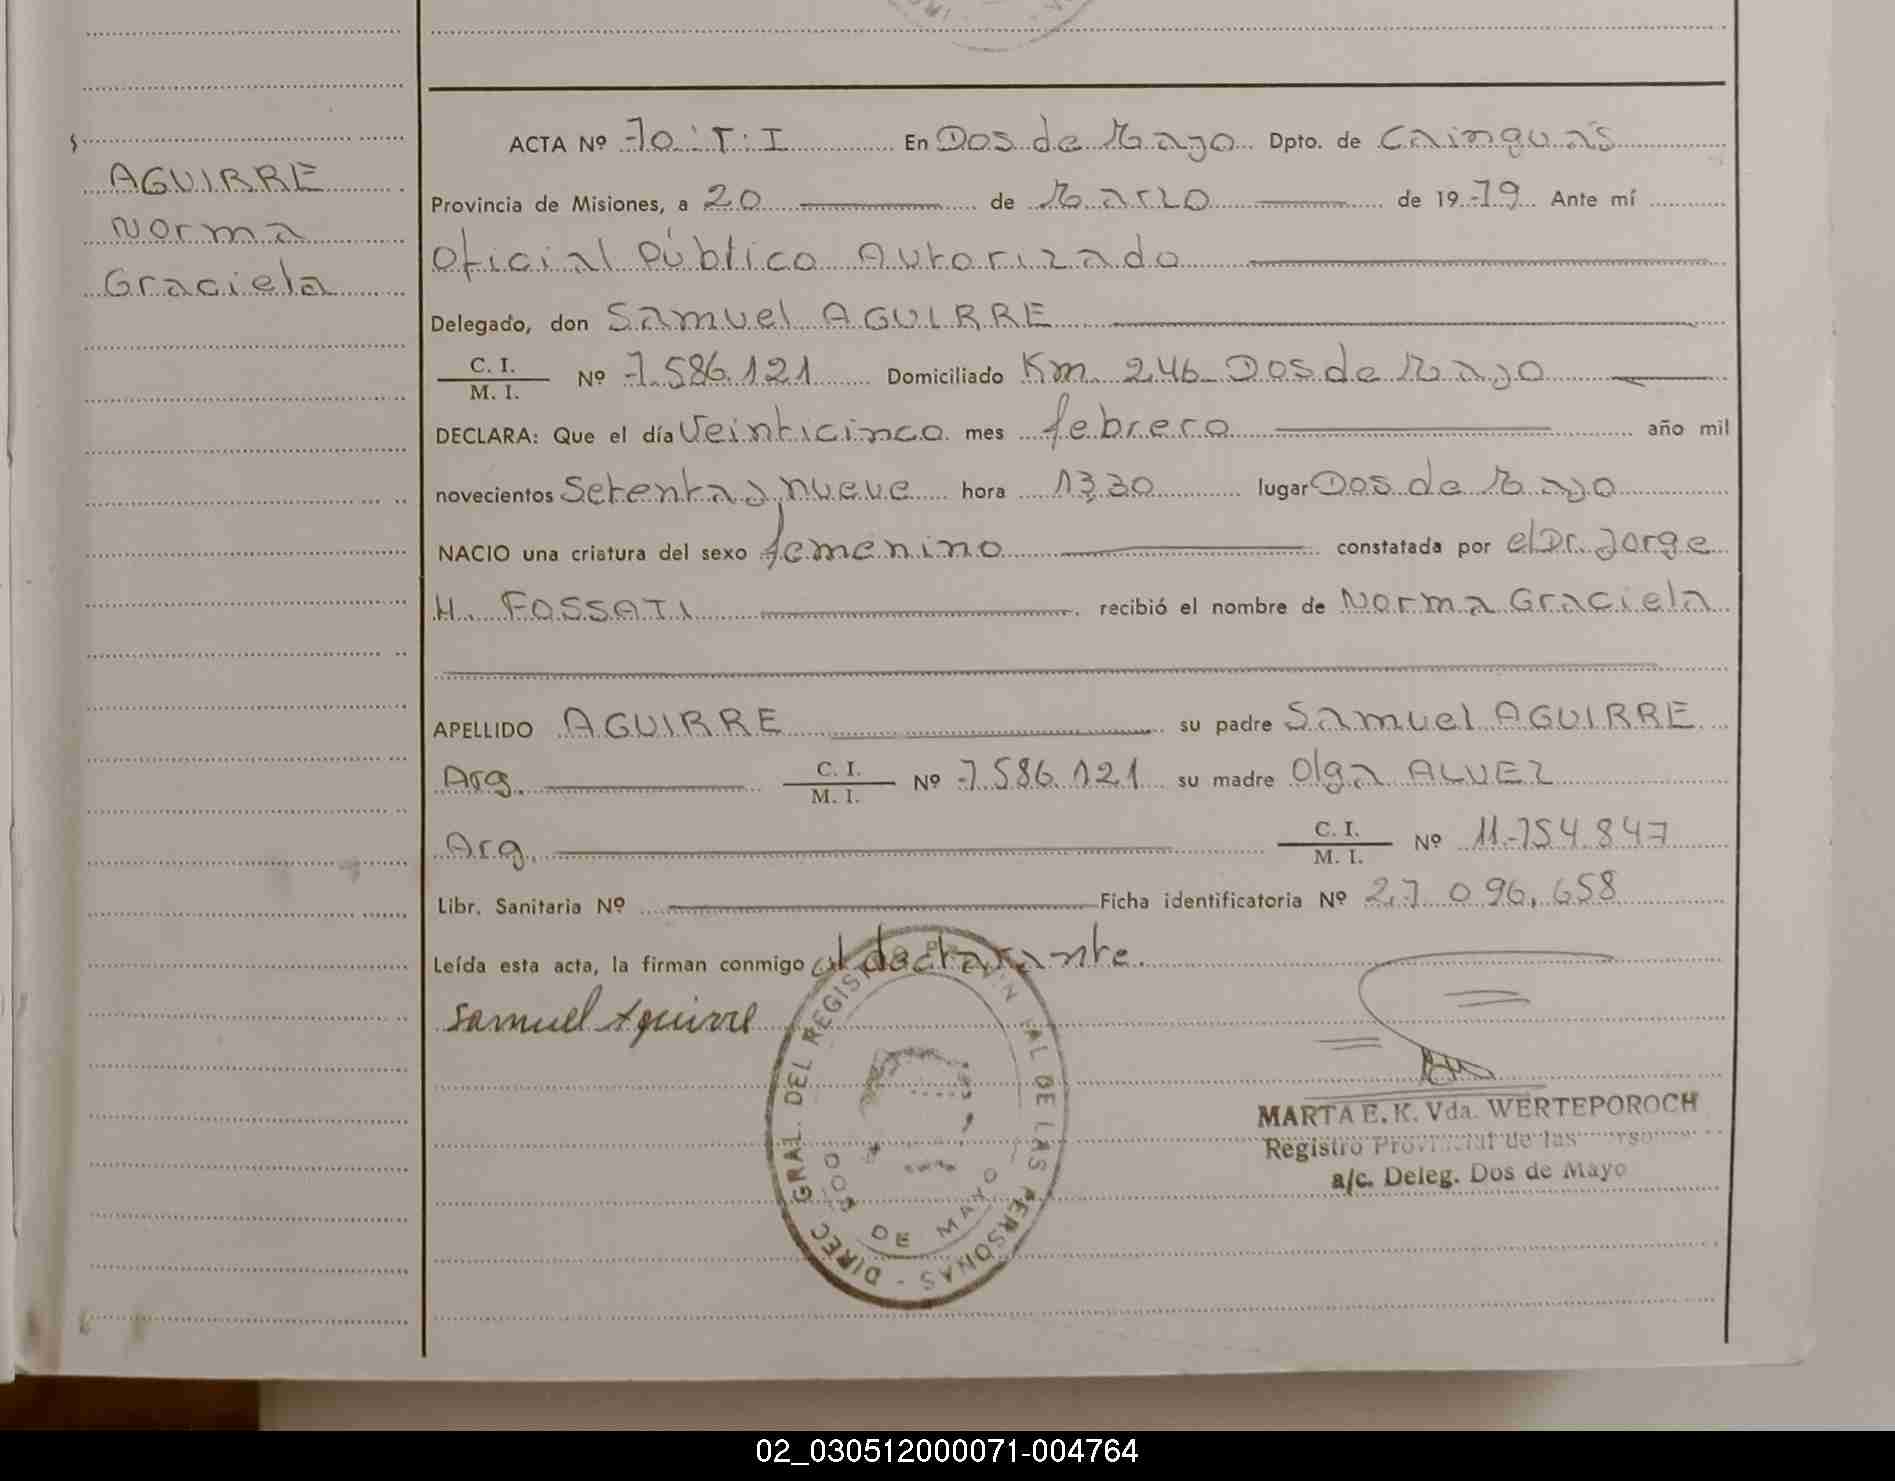 AGUIRRE
Norma
Graciela
ACTA Nº 70:T:I En Dos de Mayo Dpto. de Cainguás
Provincia de Misiones, a 20 de Marzo de 1979 Ante mí
Oficial Público Autorizado
Delegado, don Samuel AGUIRRE
C. I.
M. I. Nº 7.586.121 Domiciliado Km. 246 Dos de Mayo
DECLARA: Que el día Veinticinco mes febrero año mil
novecientos Setenta y nueve hora 13,30 lugar Dos de Mayo
NACIO una criatura del sexo femenino constatada por el Dr. Jorge
H. FOSSATI recibió el nombre de Norma Graciela
APELLIDO AGUIRRE su padre Samuel AGUIRRE
Arg. C. I.
M. I. Nº 7.586.121 su madre Olga ALVEZ
Arg. C. I.
M. I. Nº 11.754.847
Libr. Sanitaria Nº Ficha identificatoria Nº 27.096.658
Leída esta acta, la firman conmigo el declarante.
Samuel Aguirre
DIREC GRAL. DEL REGIST PROVIN AL DE LAS PERSONAS -
DOS DE MAYO
MARTA E. K. Vda. WERTEPOROCH
Registro Provincial de las Personas
a/c. Deleg. Dos de Mayo
02_030512000071-004764